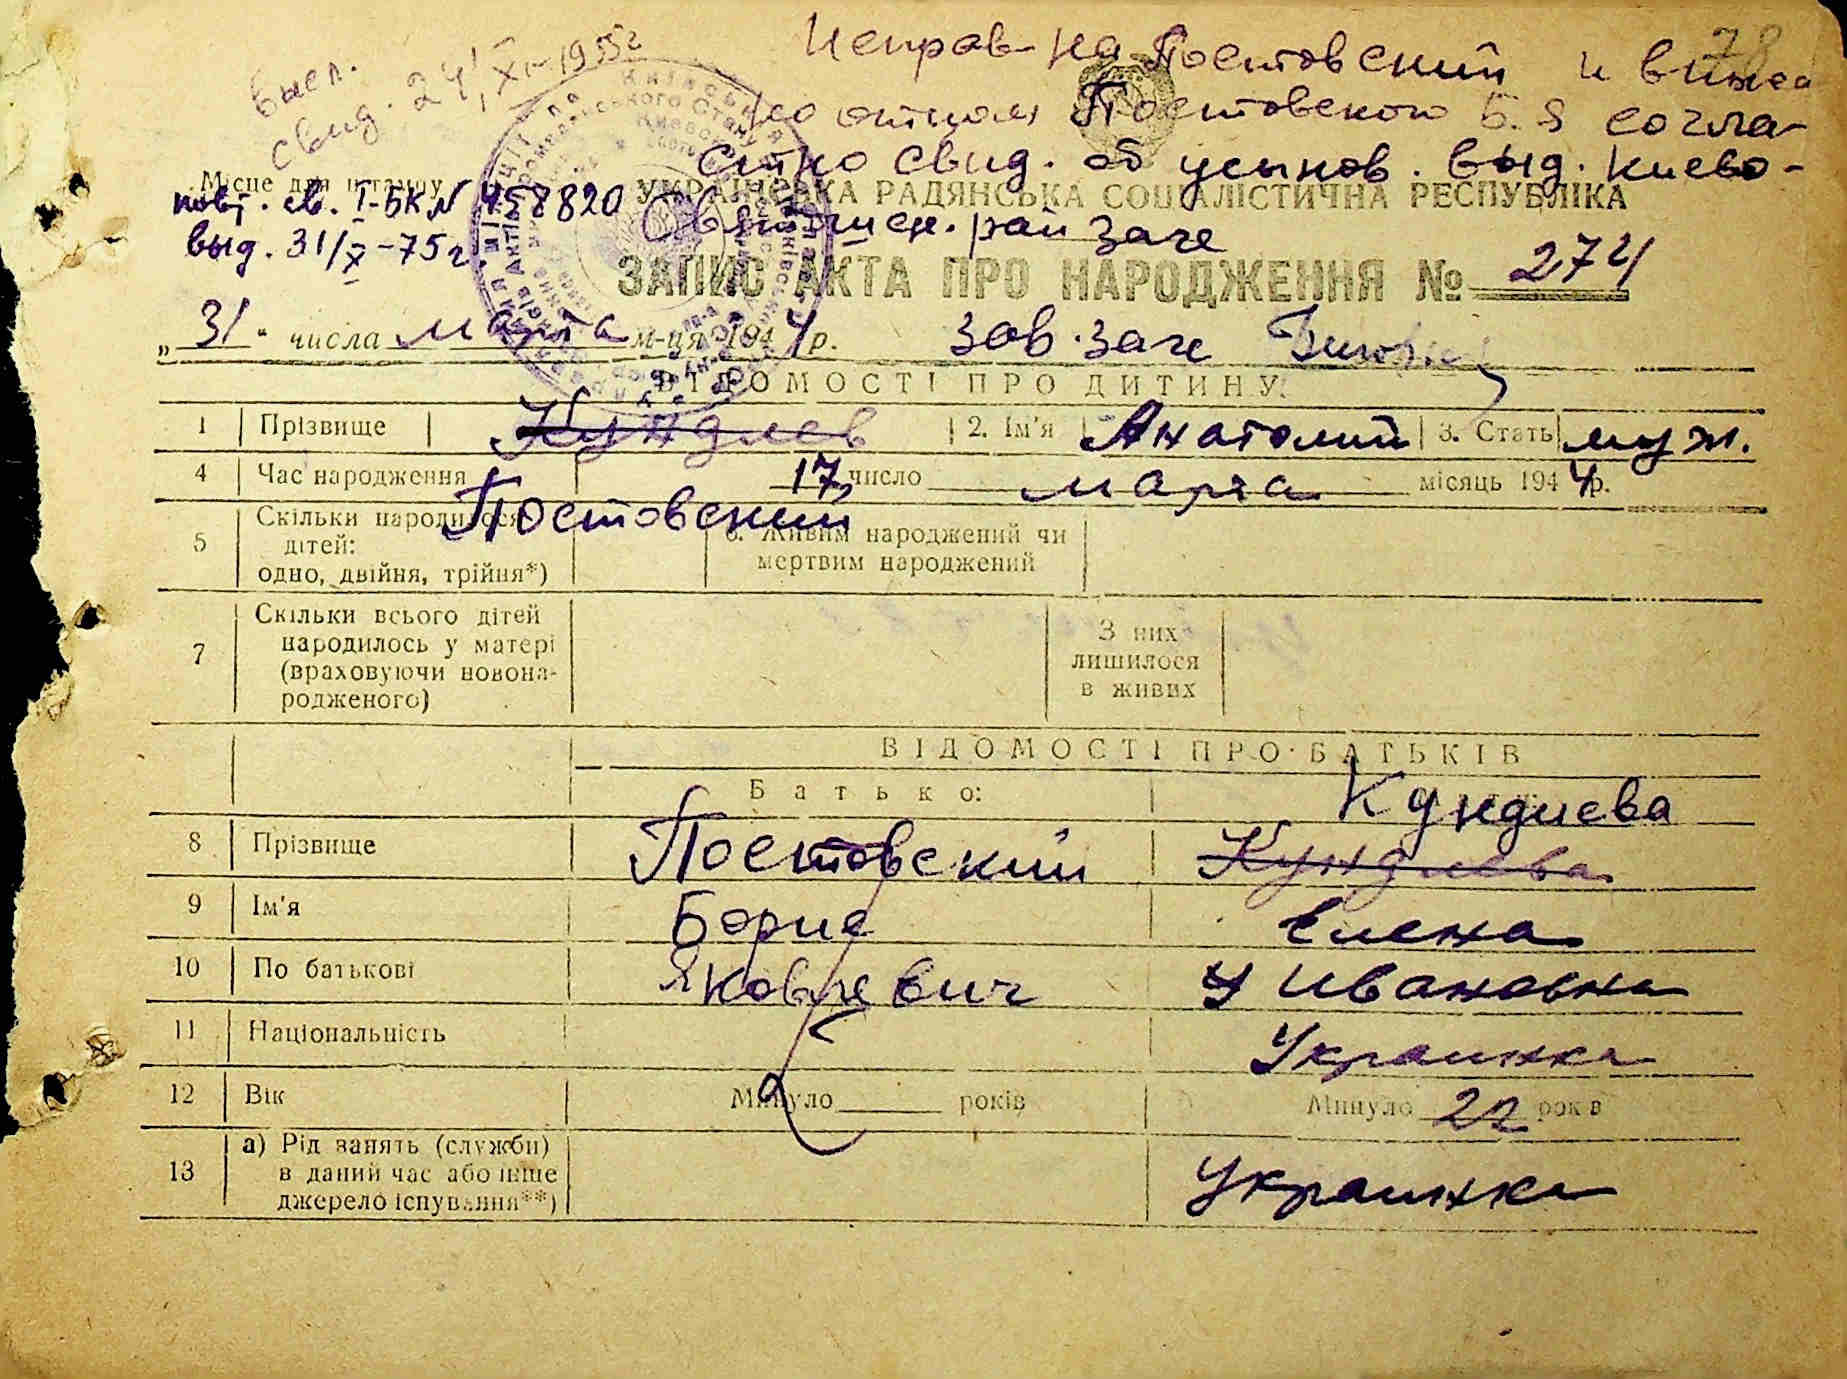 78
Исправ. на Постовский и внесе
но отцом Постовского Б. Я согла-
сно свид. об усынов. выд. Киево-
Святошинск. рай загс
Высл.
свид. 24/XI-1955г
Місце для штампу
повт. св. I-БК № 458820
выд. 31/X-75г.
УКРАЇНСЬКА РАДЯНСЬКА СОЦІАЛІСТИЧНА РЕСПУБЛІКА
ЗАПИС АКТА ПРО НАРОДЖЕННЯ № 274
„31“ числа марта м-ця 1944 р. Зав. загс
ВІДОМОСТІ ПРО ДИТИНУ:
1 Прізвище Кундиев 2. Ім'я Анатолий 3. Стать муж.
4 Час народження 17 число марта місяць 1944 р.
Постовский
5 Скільки народилося
дітей:
одно, двійня, трійня*)
6. Живим народжений чи
мертвим народжений
7 Скільки всього дітей
народилось у матері
(враховуючи новона-
родженого)
З них
лишилося
в живих
ВІДОМОСТІ ПРО БАТЬКІВ
Батько:
Кундиева
8 Прізвище Постовский Кундиева
9 Ім'я Борис Елена
10 По батькові Яковлевич Ивановна
11 Національність Украинка
12 Вік Минуло років Минуло 22 років
13 а) Рід занять (служби)
в даний час або інше
джерело існування**)
Украинка